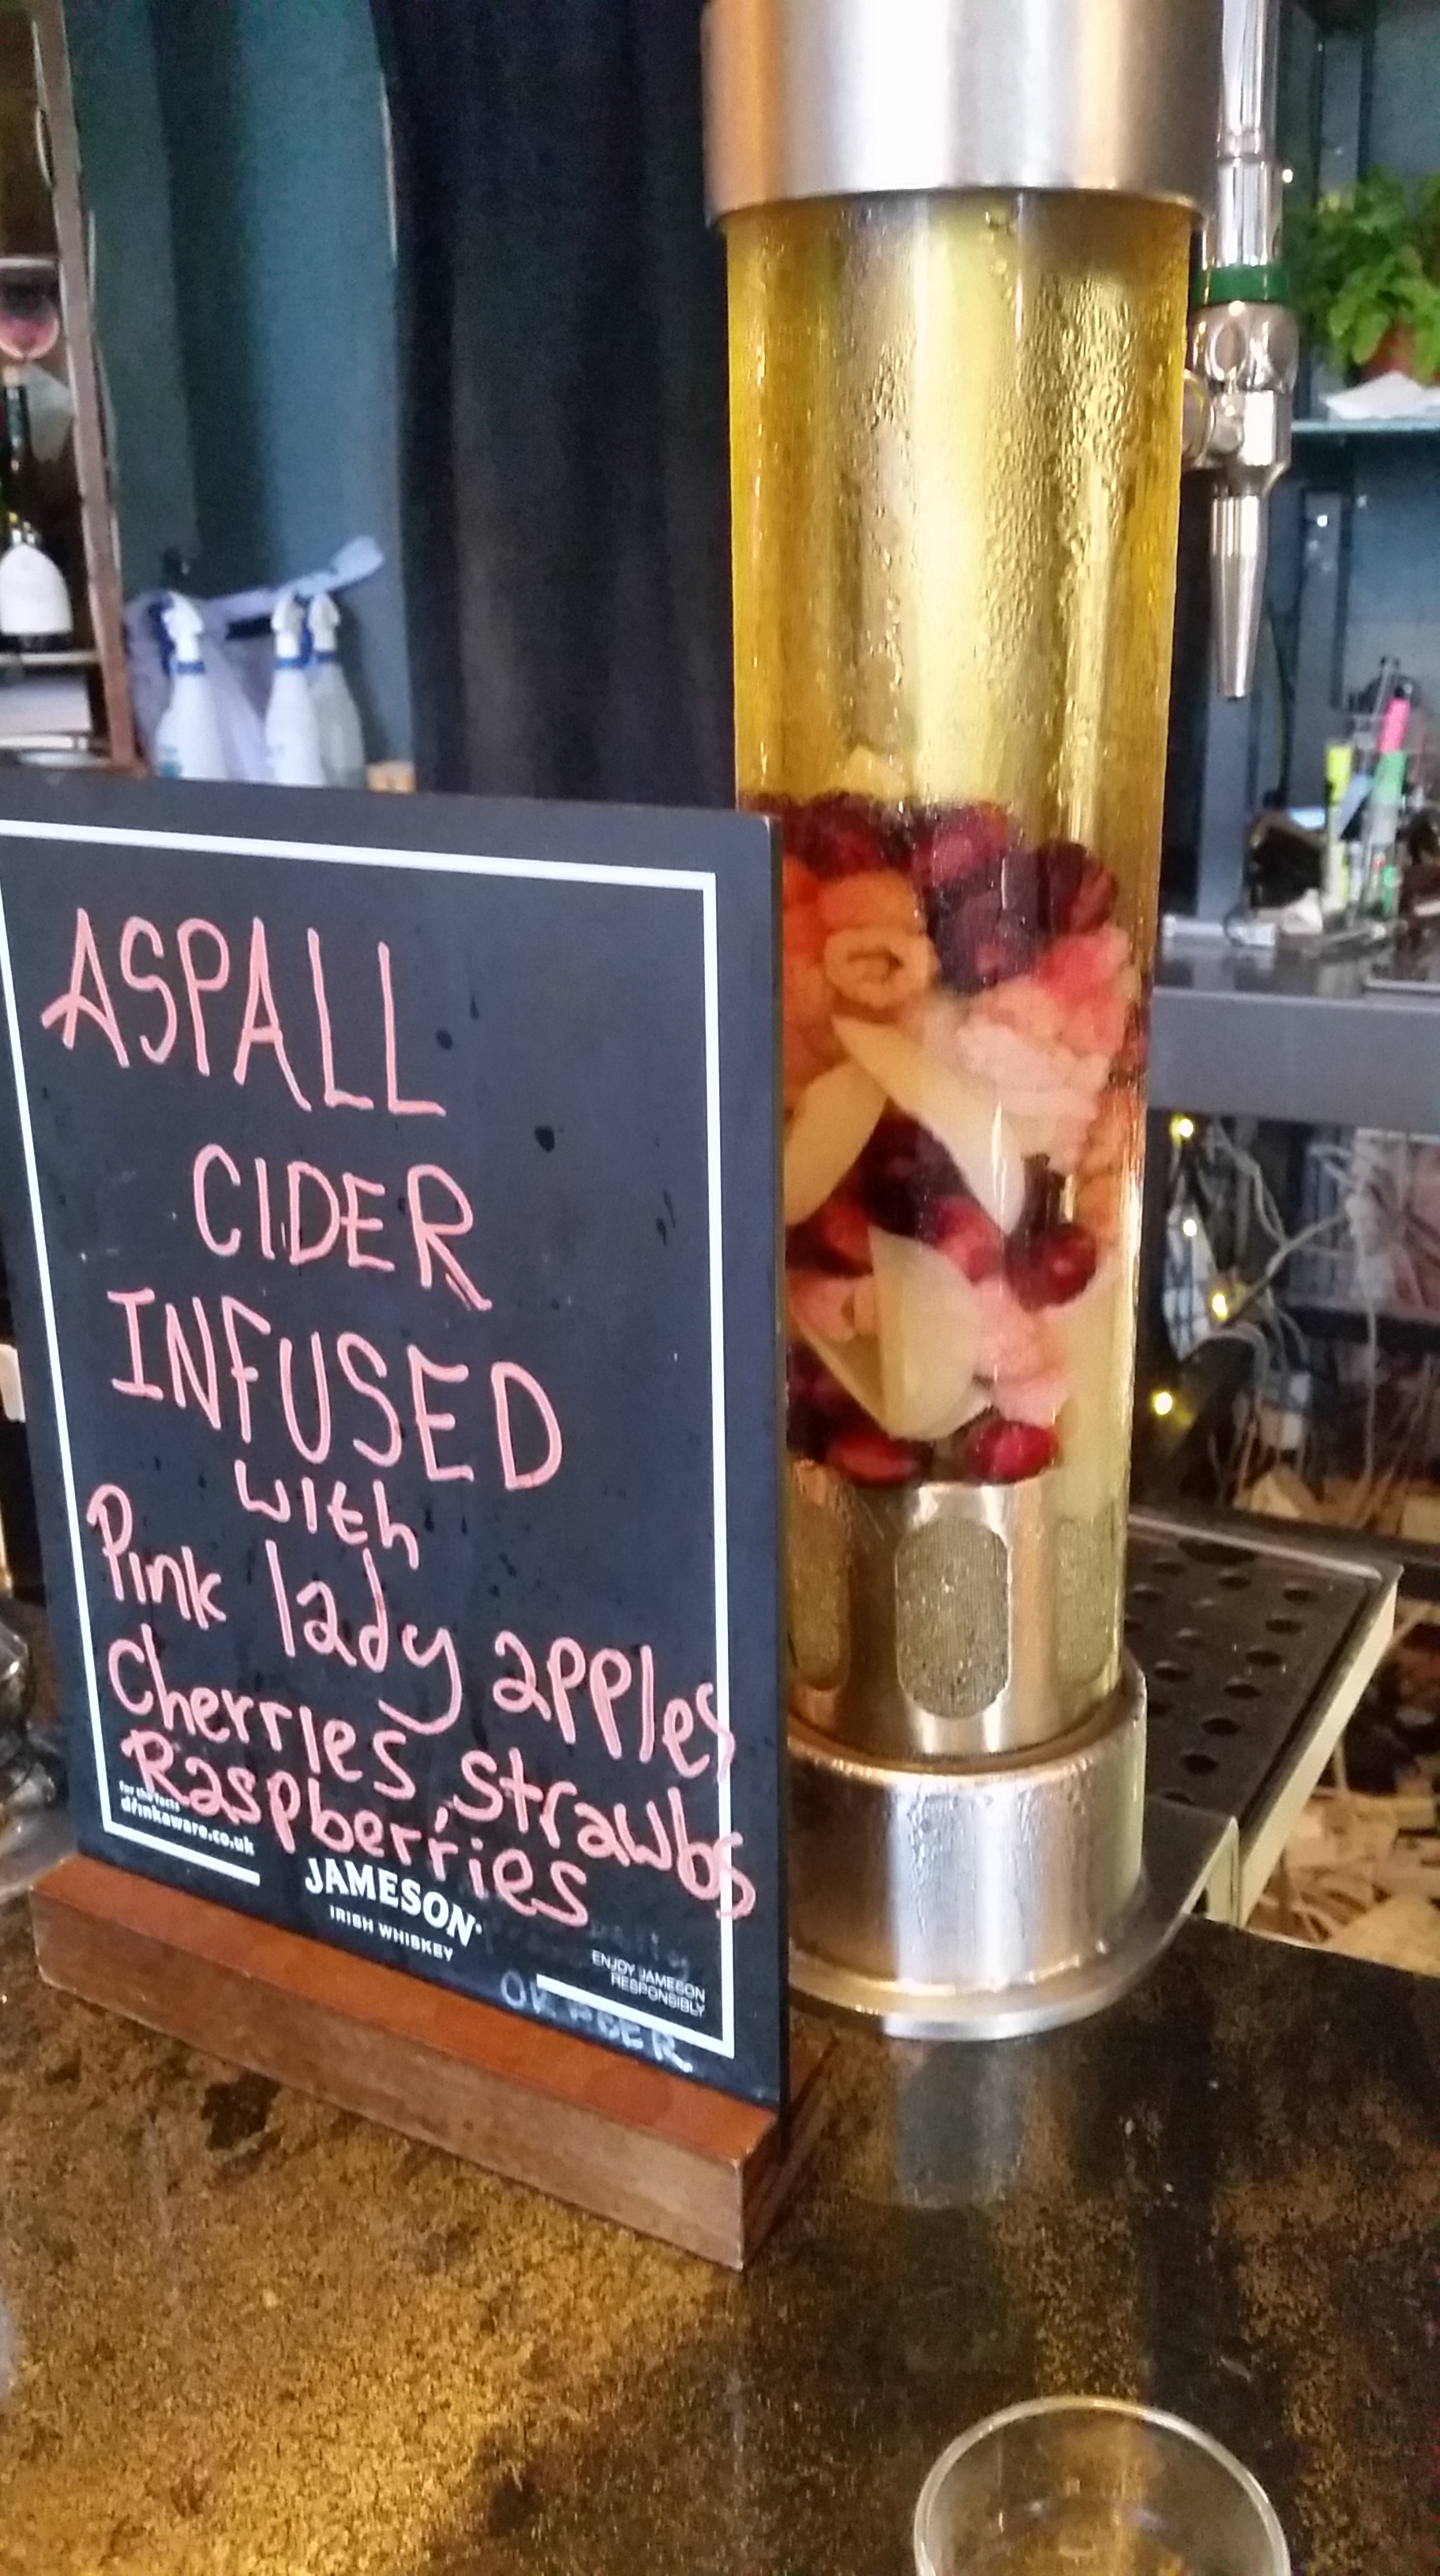 ASPALL
CIDER
INFUSED
with
Pink lady apples
Cherries, strawbs
Raspberries
for the facts
drinkaware.co.uk
JAMESON
IRISH WHISKEY
ENJOY JAMESON
RESPONSIBLY